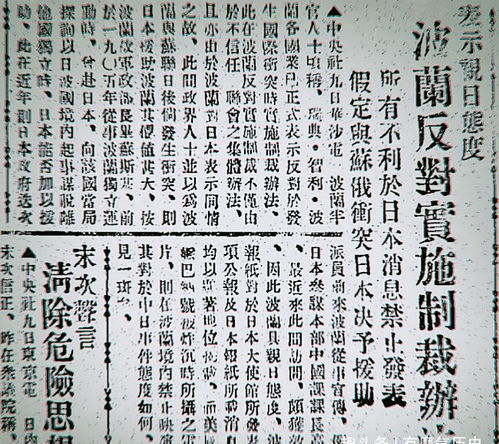 表示親日態度
波蘭反對實施制裁辦
所有不利於日本消息禁止發表
假定與蘇俄衝突日本決予援助
▲中央社九日華沙電　波蘭半
官人士頃稱、瑞典・智利・波
蘭各國業已正式表示反對於發
生國際衝突時實施制裁辦法、
此在波蘭反對實施制裁不僅由
於不信任　聯會之集體辦法、
且亦由於波蘭對日本表示同情
之故、此間政界人士並以爲波
蘭與蘇聯日後倘發生衝突、則
日本援助波蘭其價值甚大、按
波蘭故軍政部長畢蘇斯基、前
於一九〇五年從事波蘭獨立運
動時、曾赴日本、向該國當局
探詢以日波國境內起事謀脫離
他國獨立時、日本能否加以援
助、此在近年則日本政府迭次
派員前來波蘭從事宣傳、
日本參謀本部中國課課長
、最近來此間訪問、頗獲
、因此波蘭具親日態度、波
報紙對於日本大使館所發
項公報及日本報紙所載消
均以顯著地位披載、而美
艦巴納號被炸沉時所攝之
片、則在波蘭境內禁止映
其對於中日事件態度如何、
見一斑矣、
末次聲言
清除危險思想
▲中央社九日東京電　日內
末次信正、昨在衆議院稱